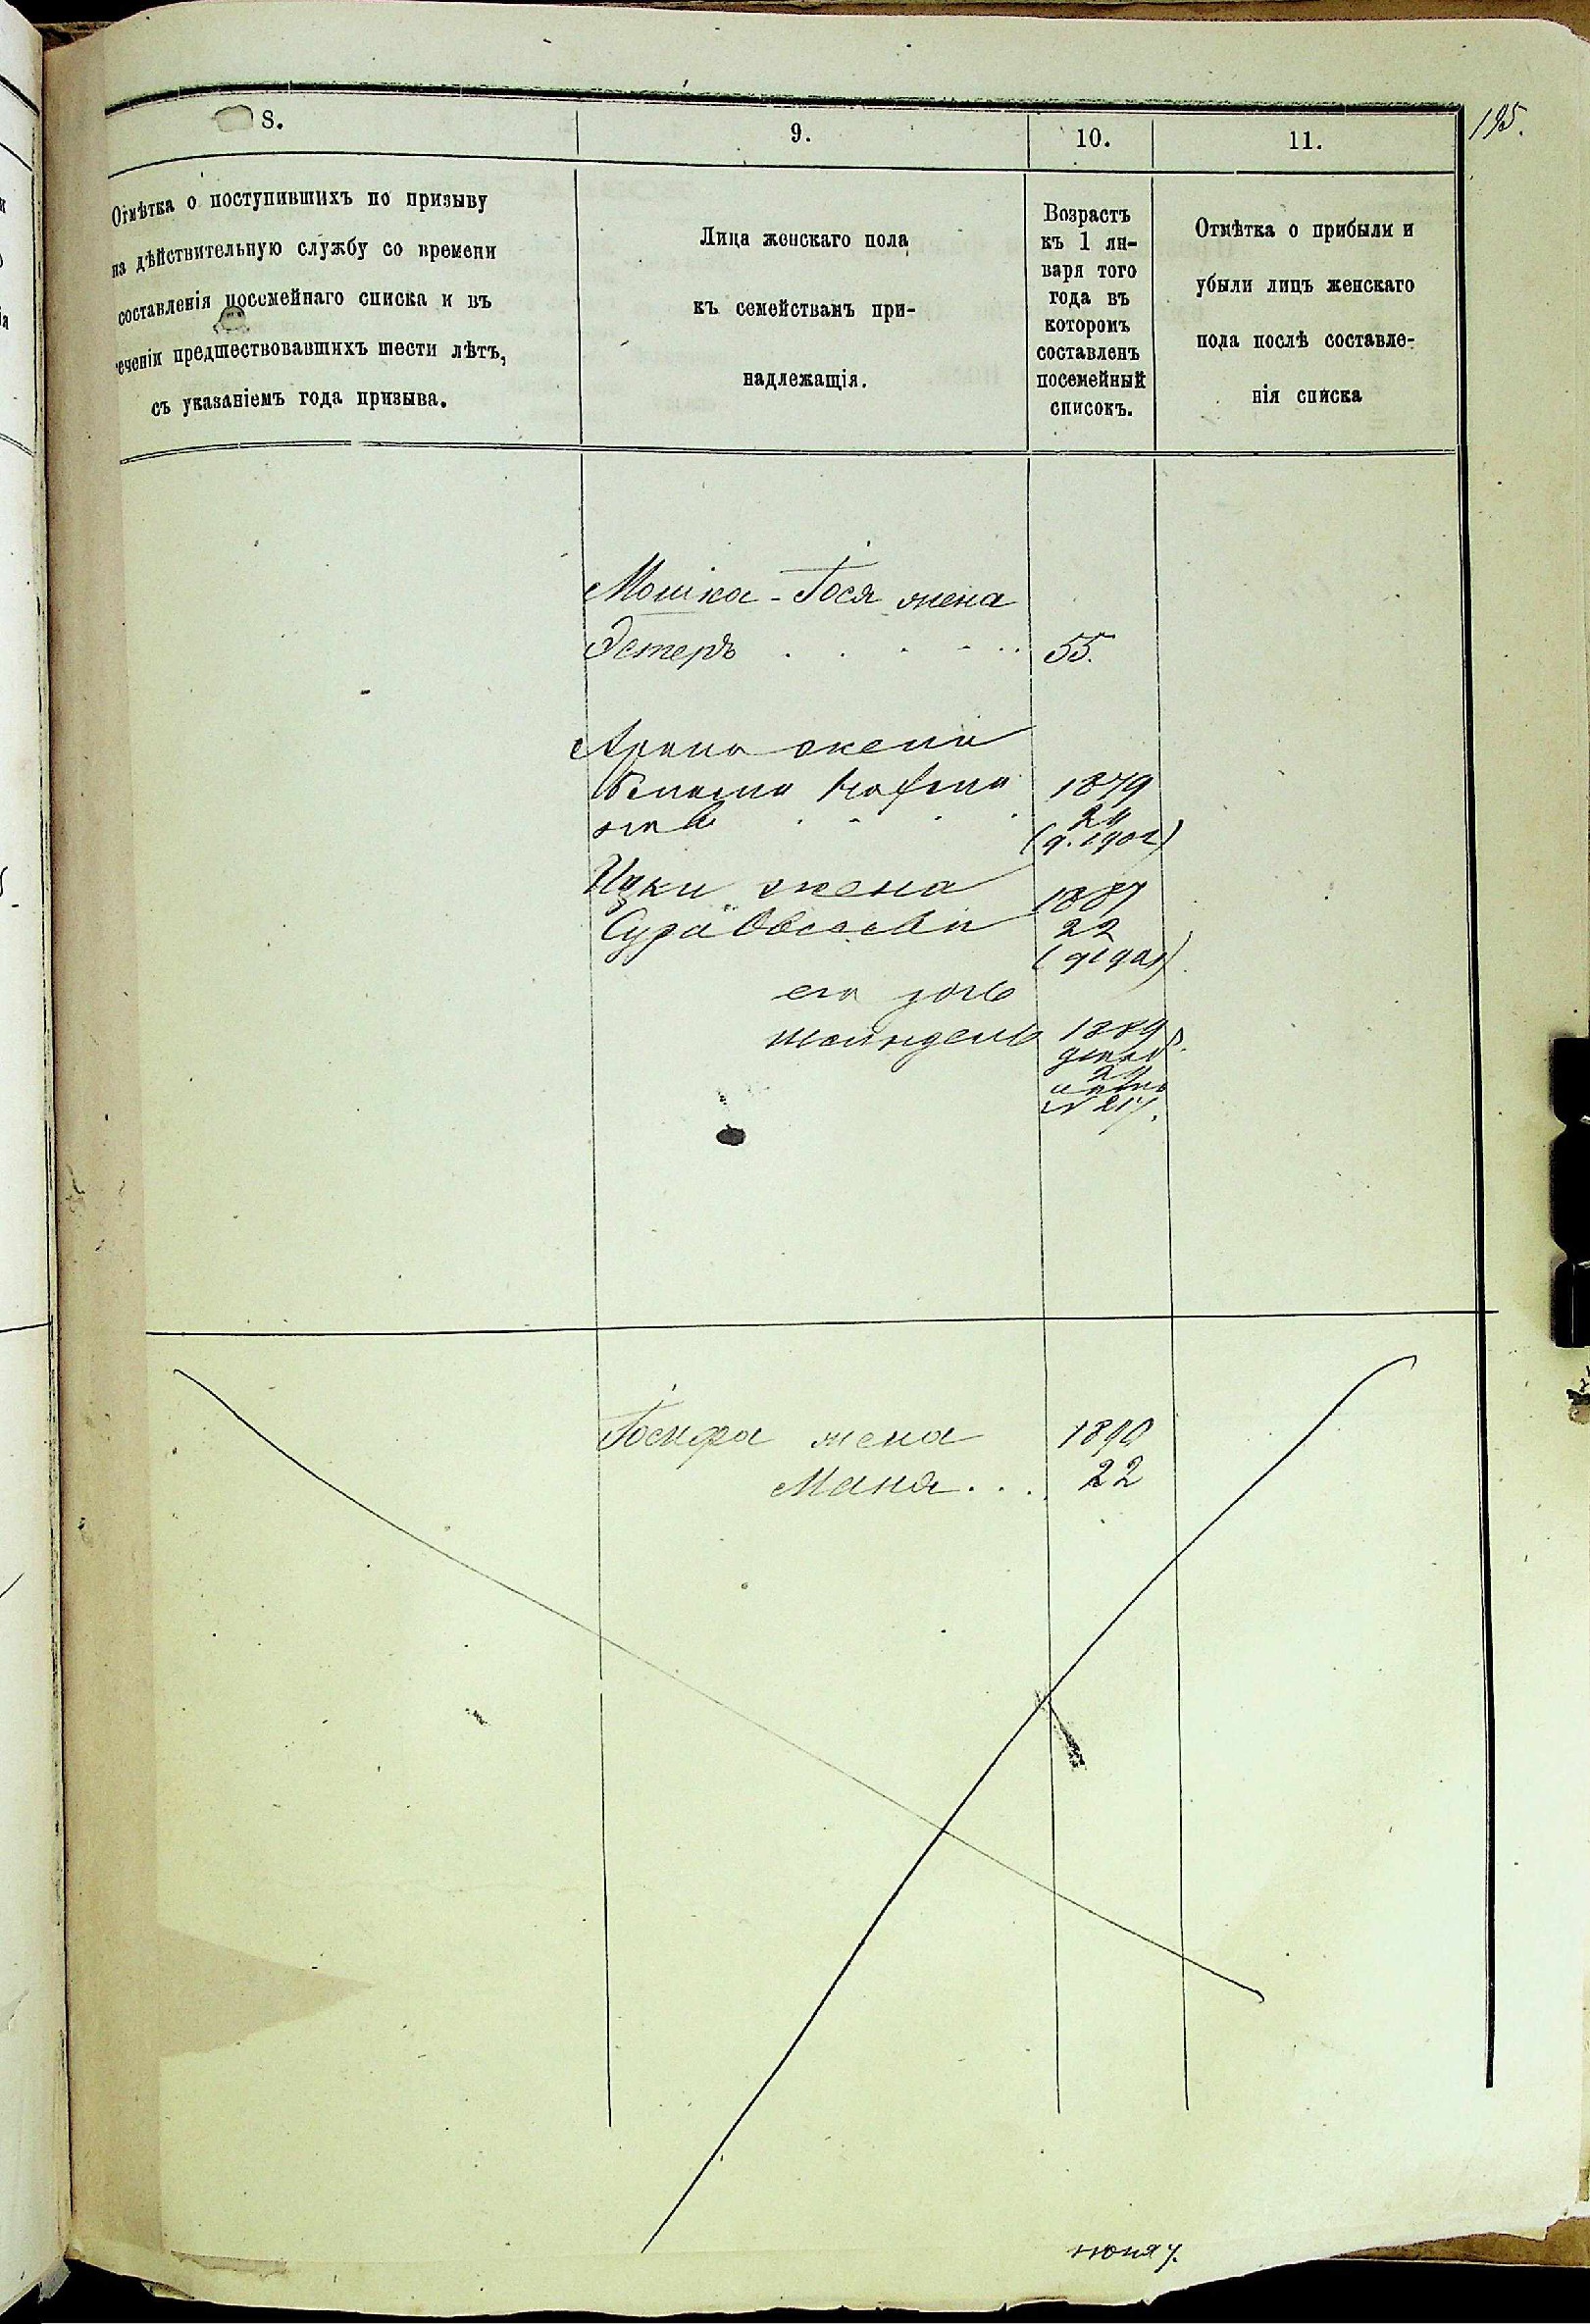 195.
8.
9.
10.
11.
Отмѣтка о поступившихъ по призыву
на дѣйствительную службу со времени
составленія посемейнаго списка и въ
теченіи предшествовавшихъ шести лѣтъ,
съ указаніемъ года призыва.
Лица женскаго пола
къ семействамъ при-
надлежащія.
Возрастъ
къ 1 ян-
варя того
года въ
которомъ
составленъ
посемейный
списокъ.
Отмѣтка о прибыли и
убыли лицъ женскаго
пола послѣ составле-
нія списка
Мошка-Іося жена
Эстеръ . . . . . . 55.
жена
1879
24
Ицки жена 1887
Сура 22
его дочь
Шейндель 1889
декаб.
24
№ 217.
Іосифа жена 1890
Маня . . . 22